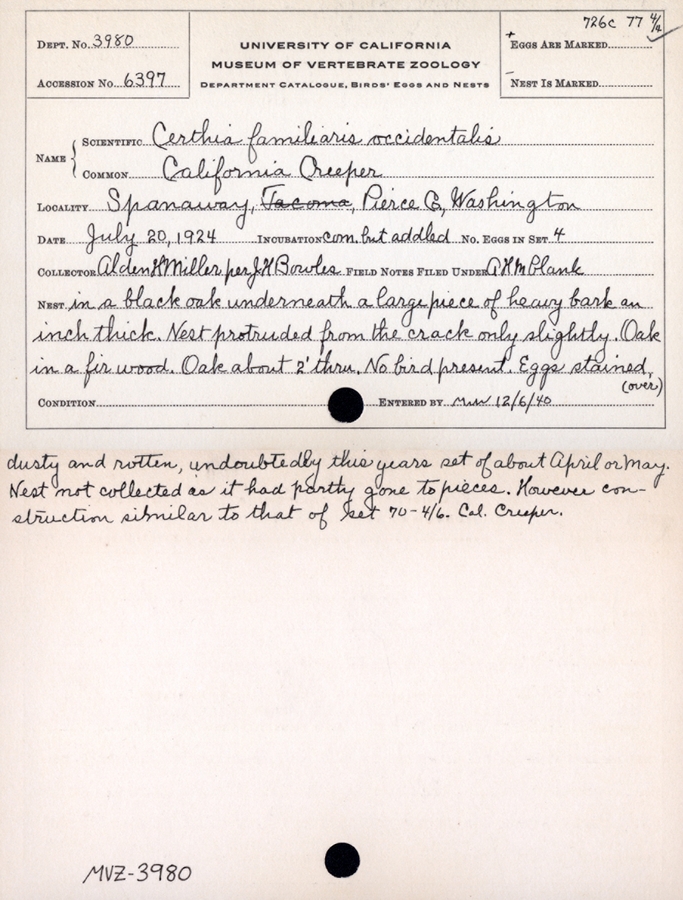 726c 77 4/4
DEPT. NO. 3980
UNIVERSITY OF CALIFORNIA
+ EGGS ARE MARKED
MUSEUM OF VERTEBRATE ZOOLOGY
ACCESSION NO. 6397
DEPARTMENT CATALOGUE, BIRDS' EGGS AND NESTS
- NEST IS MARKED
NAME { SCIENTIFIC Certhia familiaris occidentalis
COMMON California Creeper
LOCALITY Spanaway, Tacoma, Pierce Co, Washington
DATE July 20, 1924 INCUBATION com. but addled NO. EGGS IN SET 4
COLLECTOR Alden H Miller per J H Bowles FIELD NOTES FILED UNDER A H M blank
NEST in a black oak underneath a large piece of heavy bark an
inch thick. Nest protruded from the crack only slightly. Oak
in a fir wood. Oak about 2' thru. No bird present. Eggs stained,
(over)
CONDITION ENTERED BY 12/6/40
dusty and rotten, undoubtedly this years set of about April or May.
Nest not collected as it had partly gone to pieces. However con-
struction similar to that of set 70-4/6. Cal. Creeper.
MVZ-3980